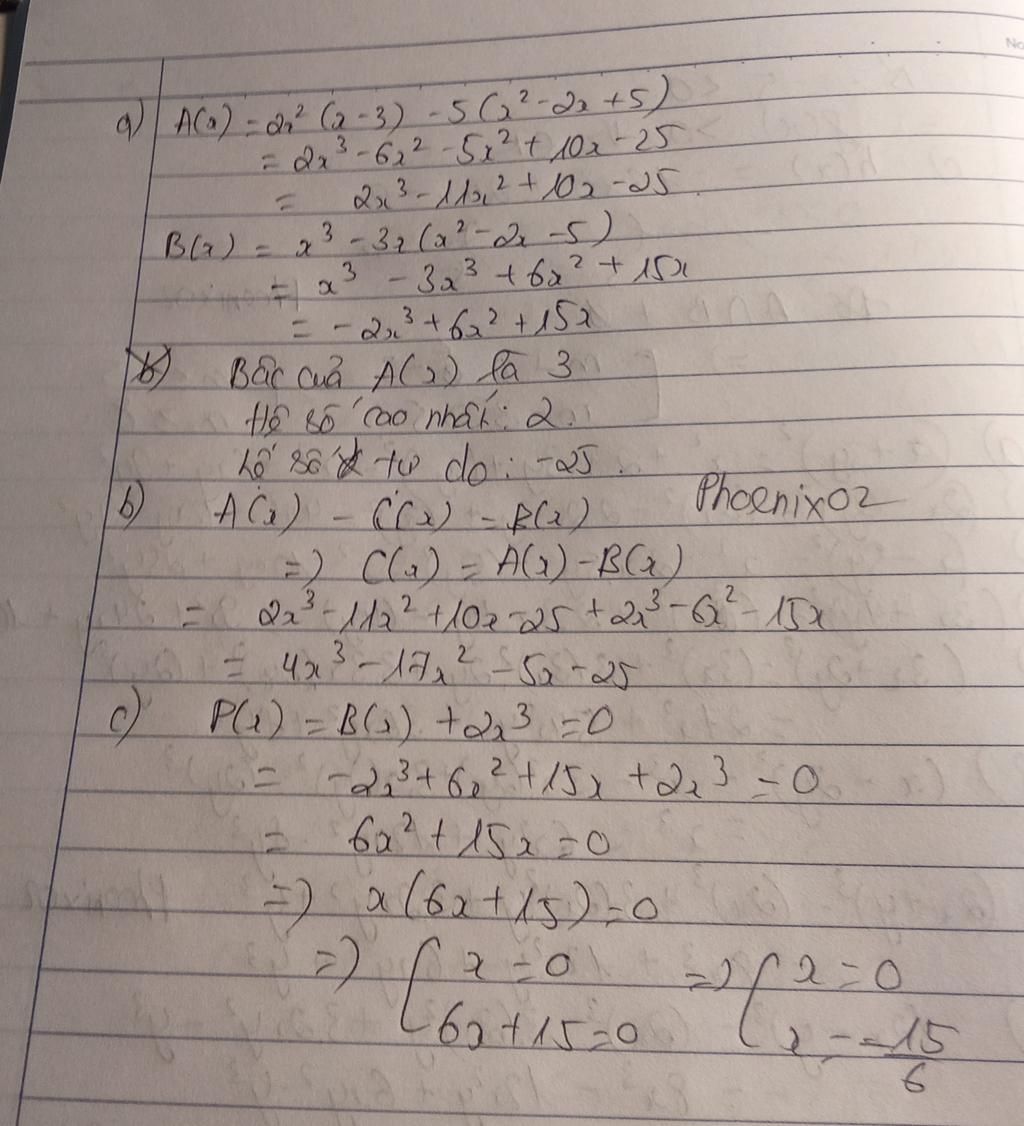 a) A(x) = 2x² (x - 3) - 5(x² - 2x + 5)
= 2x³ - 6x² - 5x² + 10x - 25
= 2x³ - 11x² + 10x - 25.
B(x) = x³ - 3x(x² - 2x - 5)
= x³ - 3x³ + 6x² + 15x
= -2x³ + 6x² + 15x
Bậc của A(x) là 3
Hệ số cao nhất: 2.
hệ số tự do: -25.
b) A(x) - C(x) = B(x) Phoenix02
=> C(x) = A(x) - B(x)
= 2x³ - 11x² + 10x - 25 + 2x³ - 6x² - 15x
= 4x³ - 17x² - 5x - 25
c) P(x) = B(x) + 2x³ = 0
= -2x³ + 6x² + 15x + 2x³ = 0
= 6x² + 15x = 0
=> x(6x + 15) = 0
=> [ x = 0 => [ x = 0
6x + 15 = 0 x = -15/6